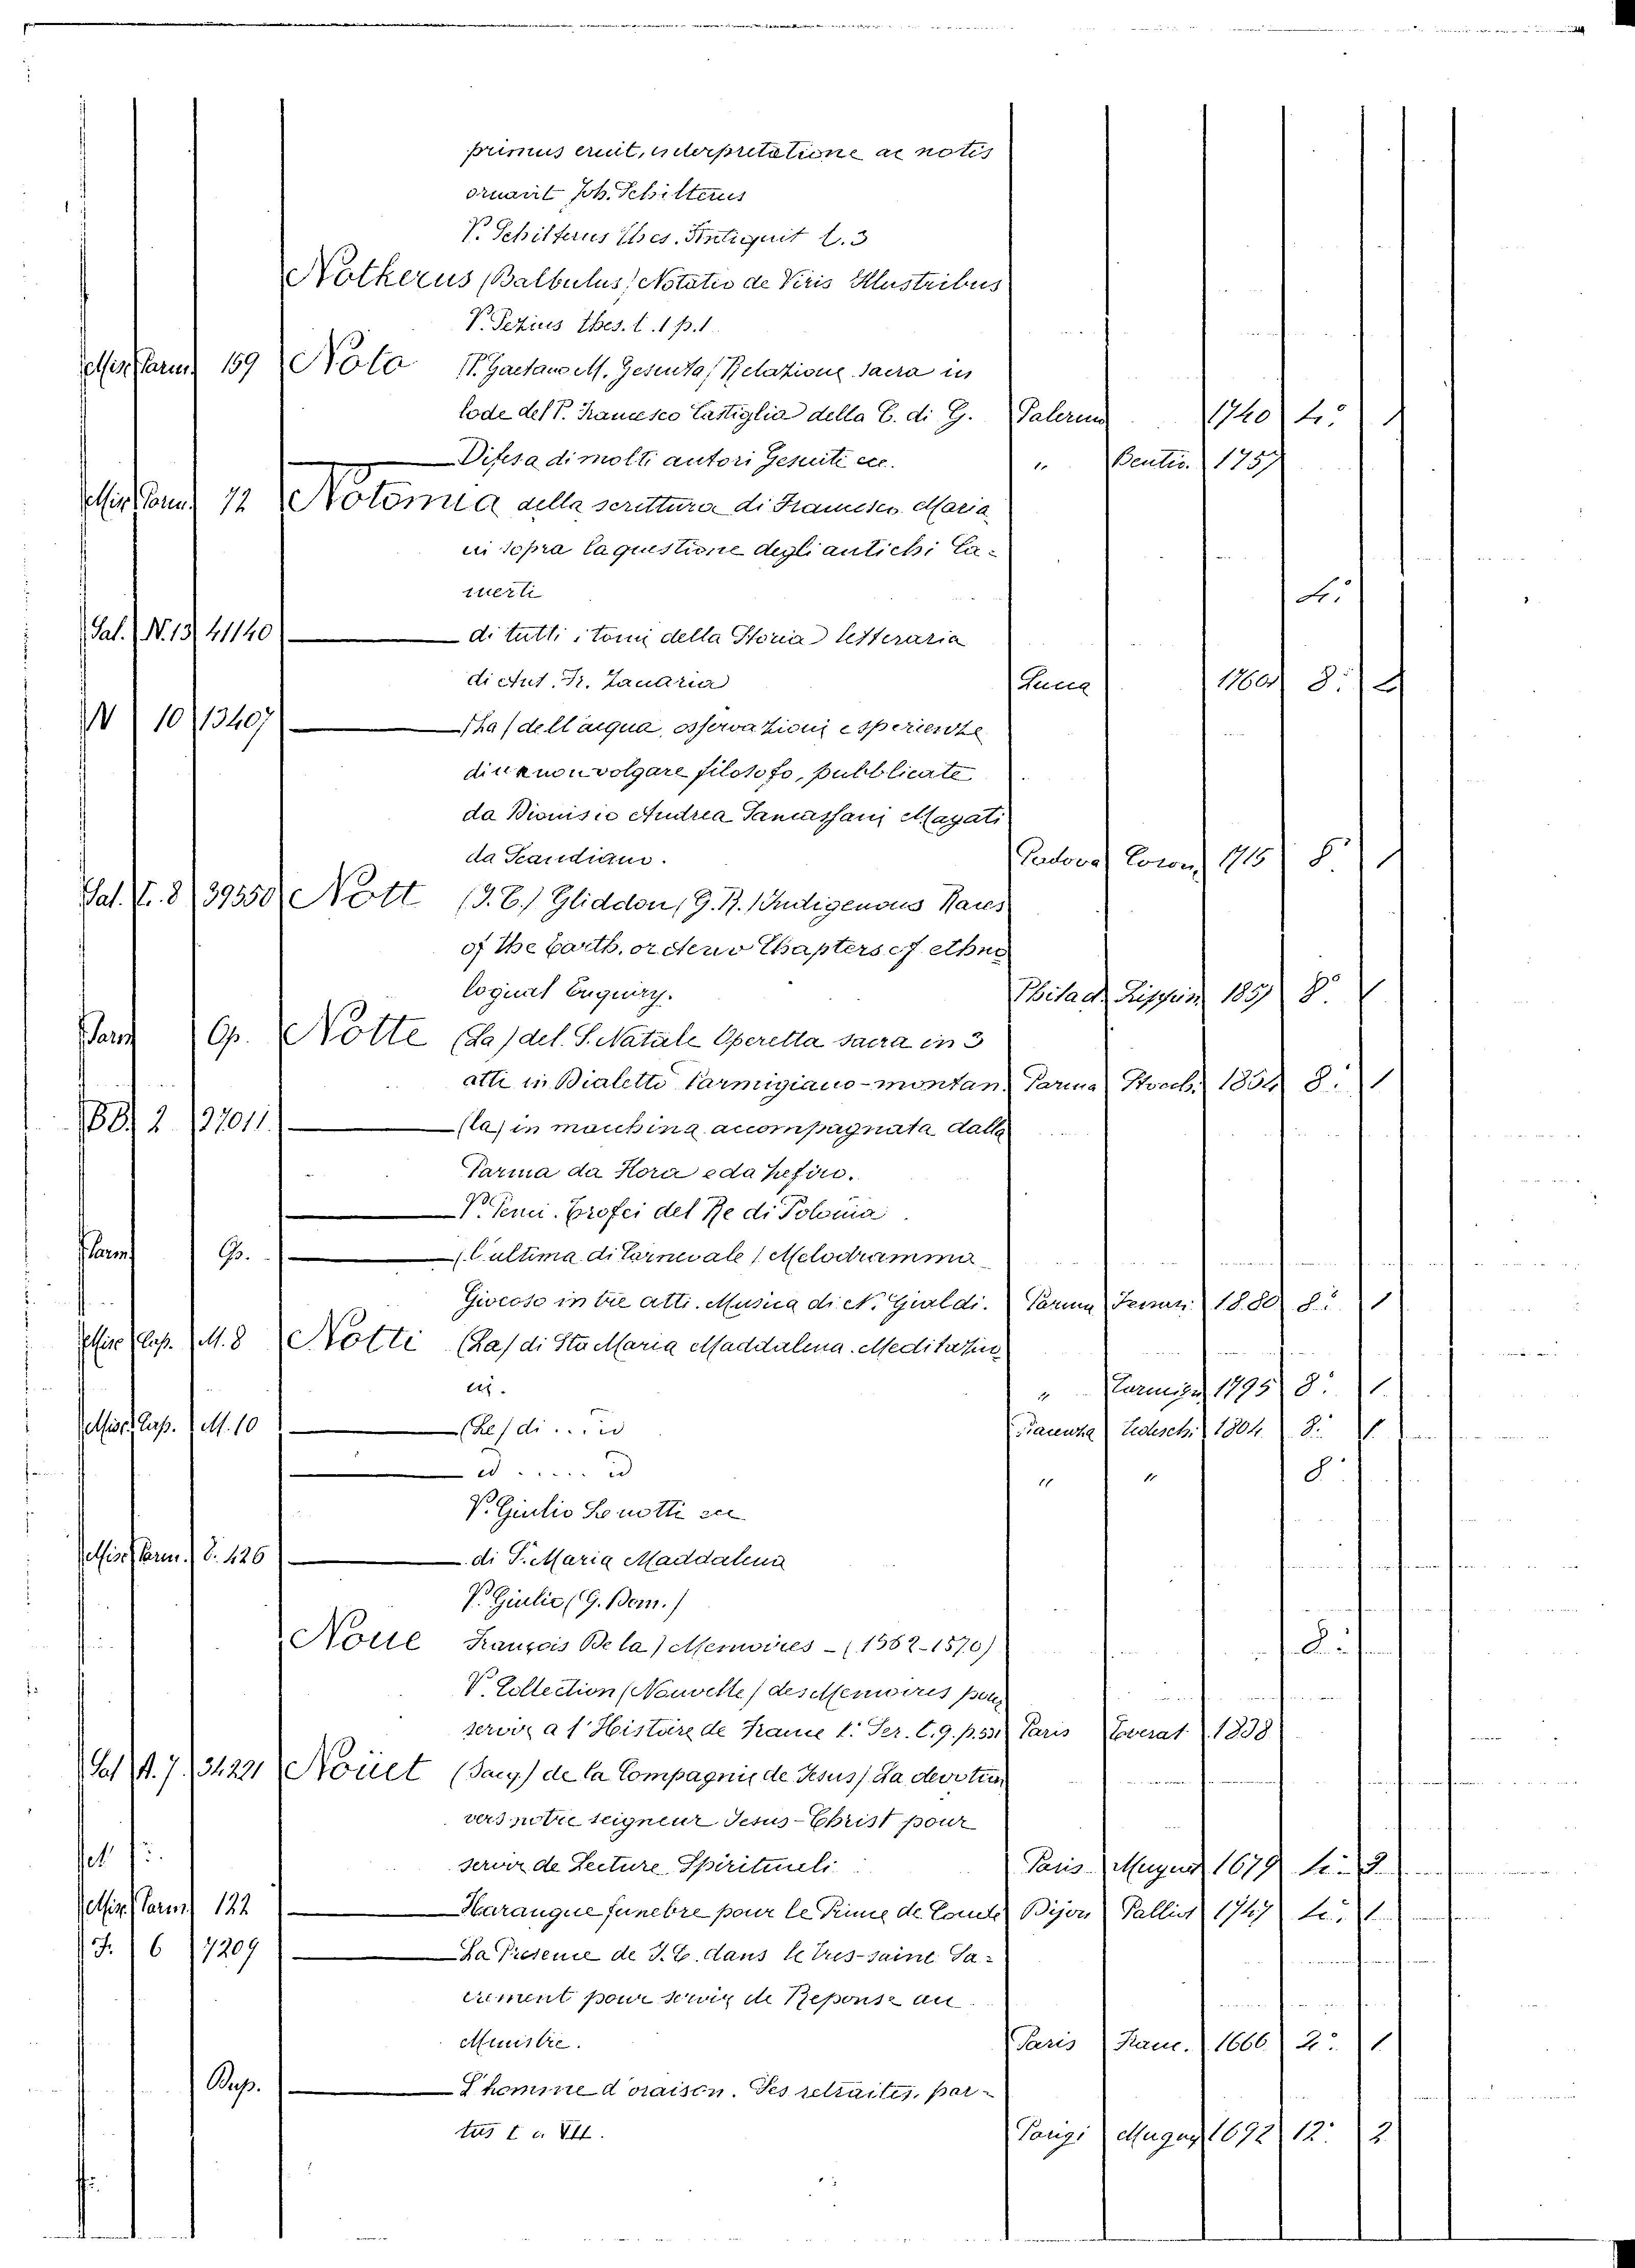 primus eruit, interpretatione ac notis
ornavit Joh. Schilterus
V. Schilterus Thes. Antiquit t. 3
Notkerus (Balbulus) Notatio de Viris Illustribus
V. Pezius thes. t. 1 p. 1
Misc. Parm. 159 Noto (P. Gaetano M. Gesuita) Relazione sacra in
lode del P. Francesco Castiglia della C. di G. Palermo 1740 4.° 1
Difesa di molti autori Gesuiti ecc. " Bentiv. 1757
Misc. Parm. 72 Notomia della scrittura di Francesco Maria
ni sopra la questione degli antichi Ca-
4.°
Sal. N. 13 41140 di tutti i tomi della Storia letteraria
di Ant. Fr. Zanaria Lucca 1760 8.° 2
N 10 13407 (La) dell'acqua, osservazioni e sperienze
di un non volgare filosofo, pubblicate
da Dionisio Andrea Sancassani Magati
da Scandiano. Padova Coron. 1715 8.° 1
Sal. T. 8 39550 Nott (J. C.) Gliddon (G. R.) Indigenous Races
of the Earth, or New Chapters of ethno
logical Enquiry. Philad. Lippin. 1857 8.° 1
Parm. Op. Notte (La) del S. Natale Operetta sacra in 3
atti in Dialetto Parmigiano-montan. Parma Stocch. 1854 8.° 1
BB. 2 27011 (la) in machina accompagnata dalla
Parma da Flora e da Zefiro.
V. Penci. Trofei del Re di Polonia
Parm. Op. (L'ultima di Carnevale) Melodramma
Giocoso in tre atti. Musica di N. Gialdi. Parma Ferrari 1880 8.° 1
Misc. Cap. M. 8 Notti (La) di Sta Maria Maddalena. Meditazio
ni. " Carmign. 1795 8.° 1
Misc. Cap. M. 10 (Le) di ... id Piacenza Tedesch. 1804 8.° 1
id ..... id " " 8.°
V. Giulio Le notti ecc
Misc. Parm. 8.° 426 di S. Maria Maddalena
V. Giulio (G. Bern.)
Noue François De la) Memoires - (1562-1570) 8.°
V. Collection (Nouvelle) des Memoires pour
servir a l'Histoire de France 1.° Ser. t. 9. p. 531 Paris Everat 1838
Sal. A. 7. 34221 Noüet (Jacq.) de la Compagnie de Jesus) La devotion
vers notre seigneur Jesus-Christ pour
servir de Lecture Spirituele Paris Muguet 1679 4.° 2
Misc. Parm. 122 Harangue funebre pour le Prince de Conde Dijon Palliot 1747 4.° 1
F. 6 7209 La Presence de J. C. dans le tres-saint Sa-
crement pour servir de Reponse au
Ministre. Paris Franc. 1666 2.° 1
Dup. L'homme d'oraison. Ses retraites, par-
ties I a VII. Parigi Muguet 1692 12.° 2